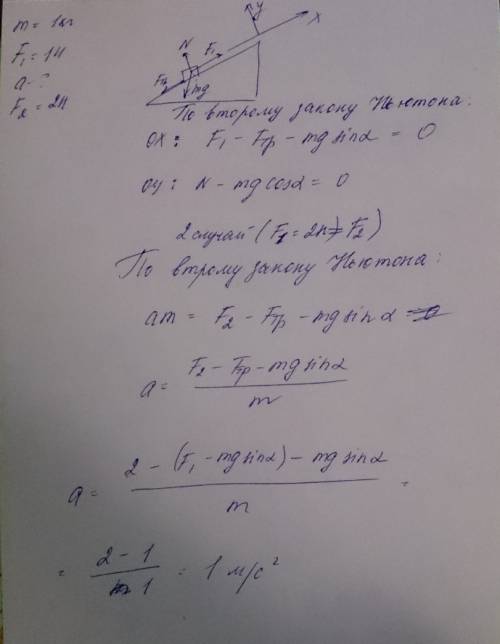 m = 1кг
F₁ = 1Н
a - ?
F₂ = 2Н
y
X
N
F₁
Fтр
mg
По второму закону Ньютона:
OX: F₁ - Fтр - mg sinα = 0
OY: N - mg cosα = 0
2 случай (F₁ = 2Н = F₂)
По втрому закону Ньютона:
am = F₂ - Fтр - mg sinα
a = \frac{F₂ - Fтр - mg sinα}{m}
a = \frac{2 - (F₁ - mg sinα) - mg sinα}{m} =
= \frac{2 - 1}{1} = 1 м/с²